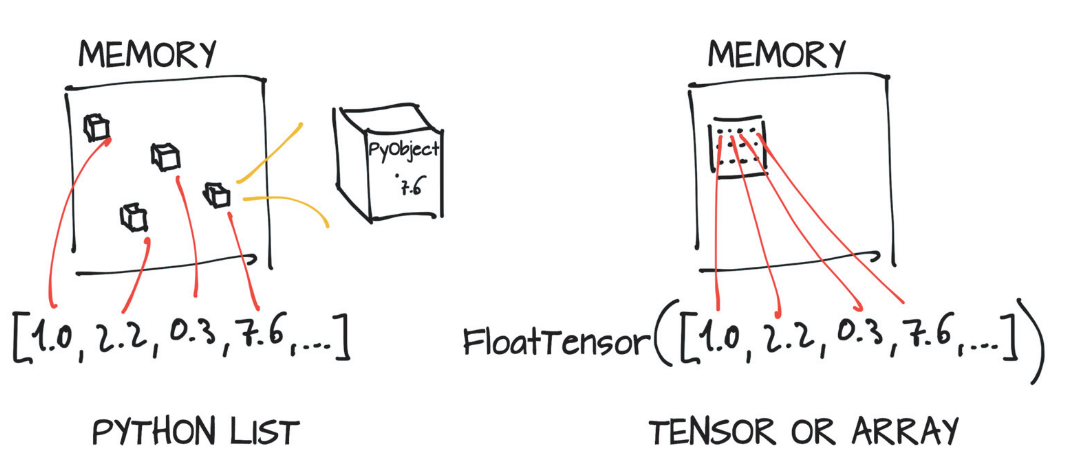 MEMORY
PyObject
7.6
[1.0, 2.2, 0.3, 7.6, ...]
PYTHON LIST
MEMORY
FloatTensor([1.0, 2.2, 0.3, 7.6, ...])
TENSOR OR ARRAY